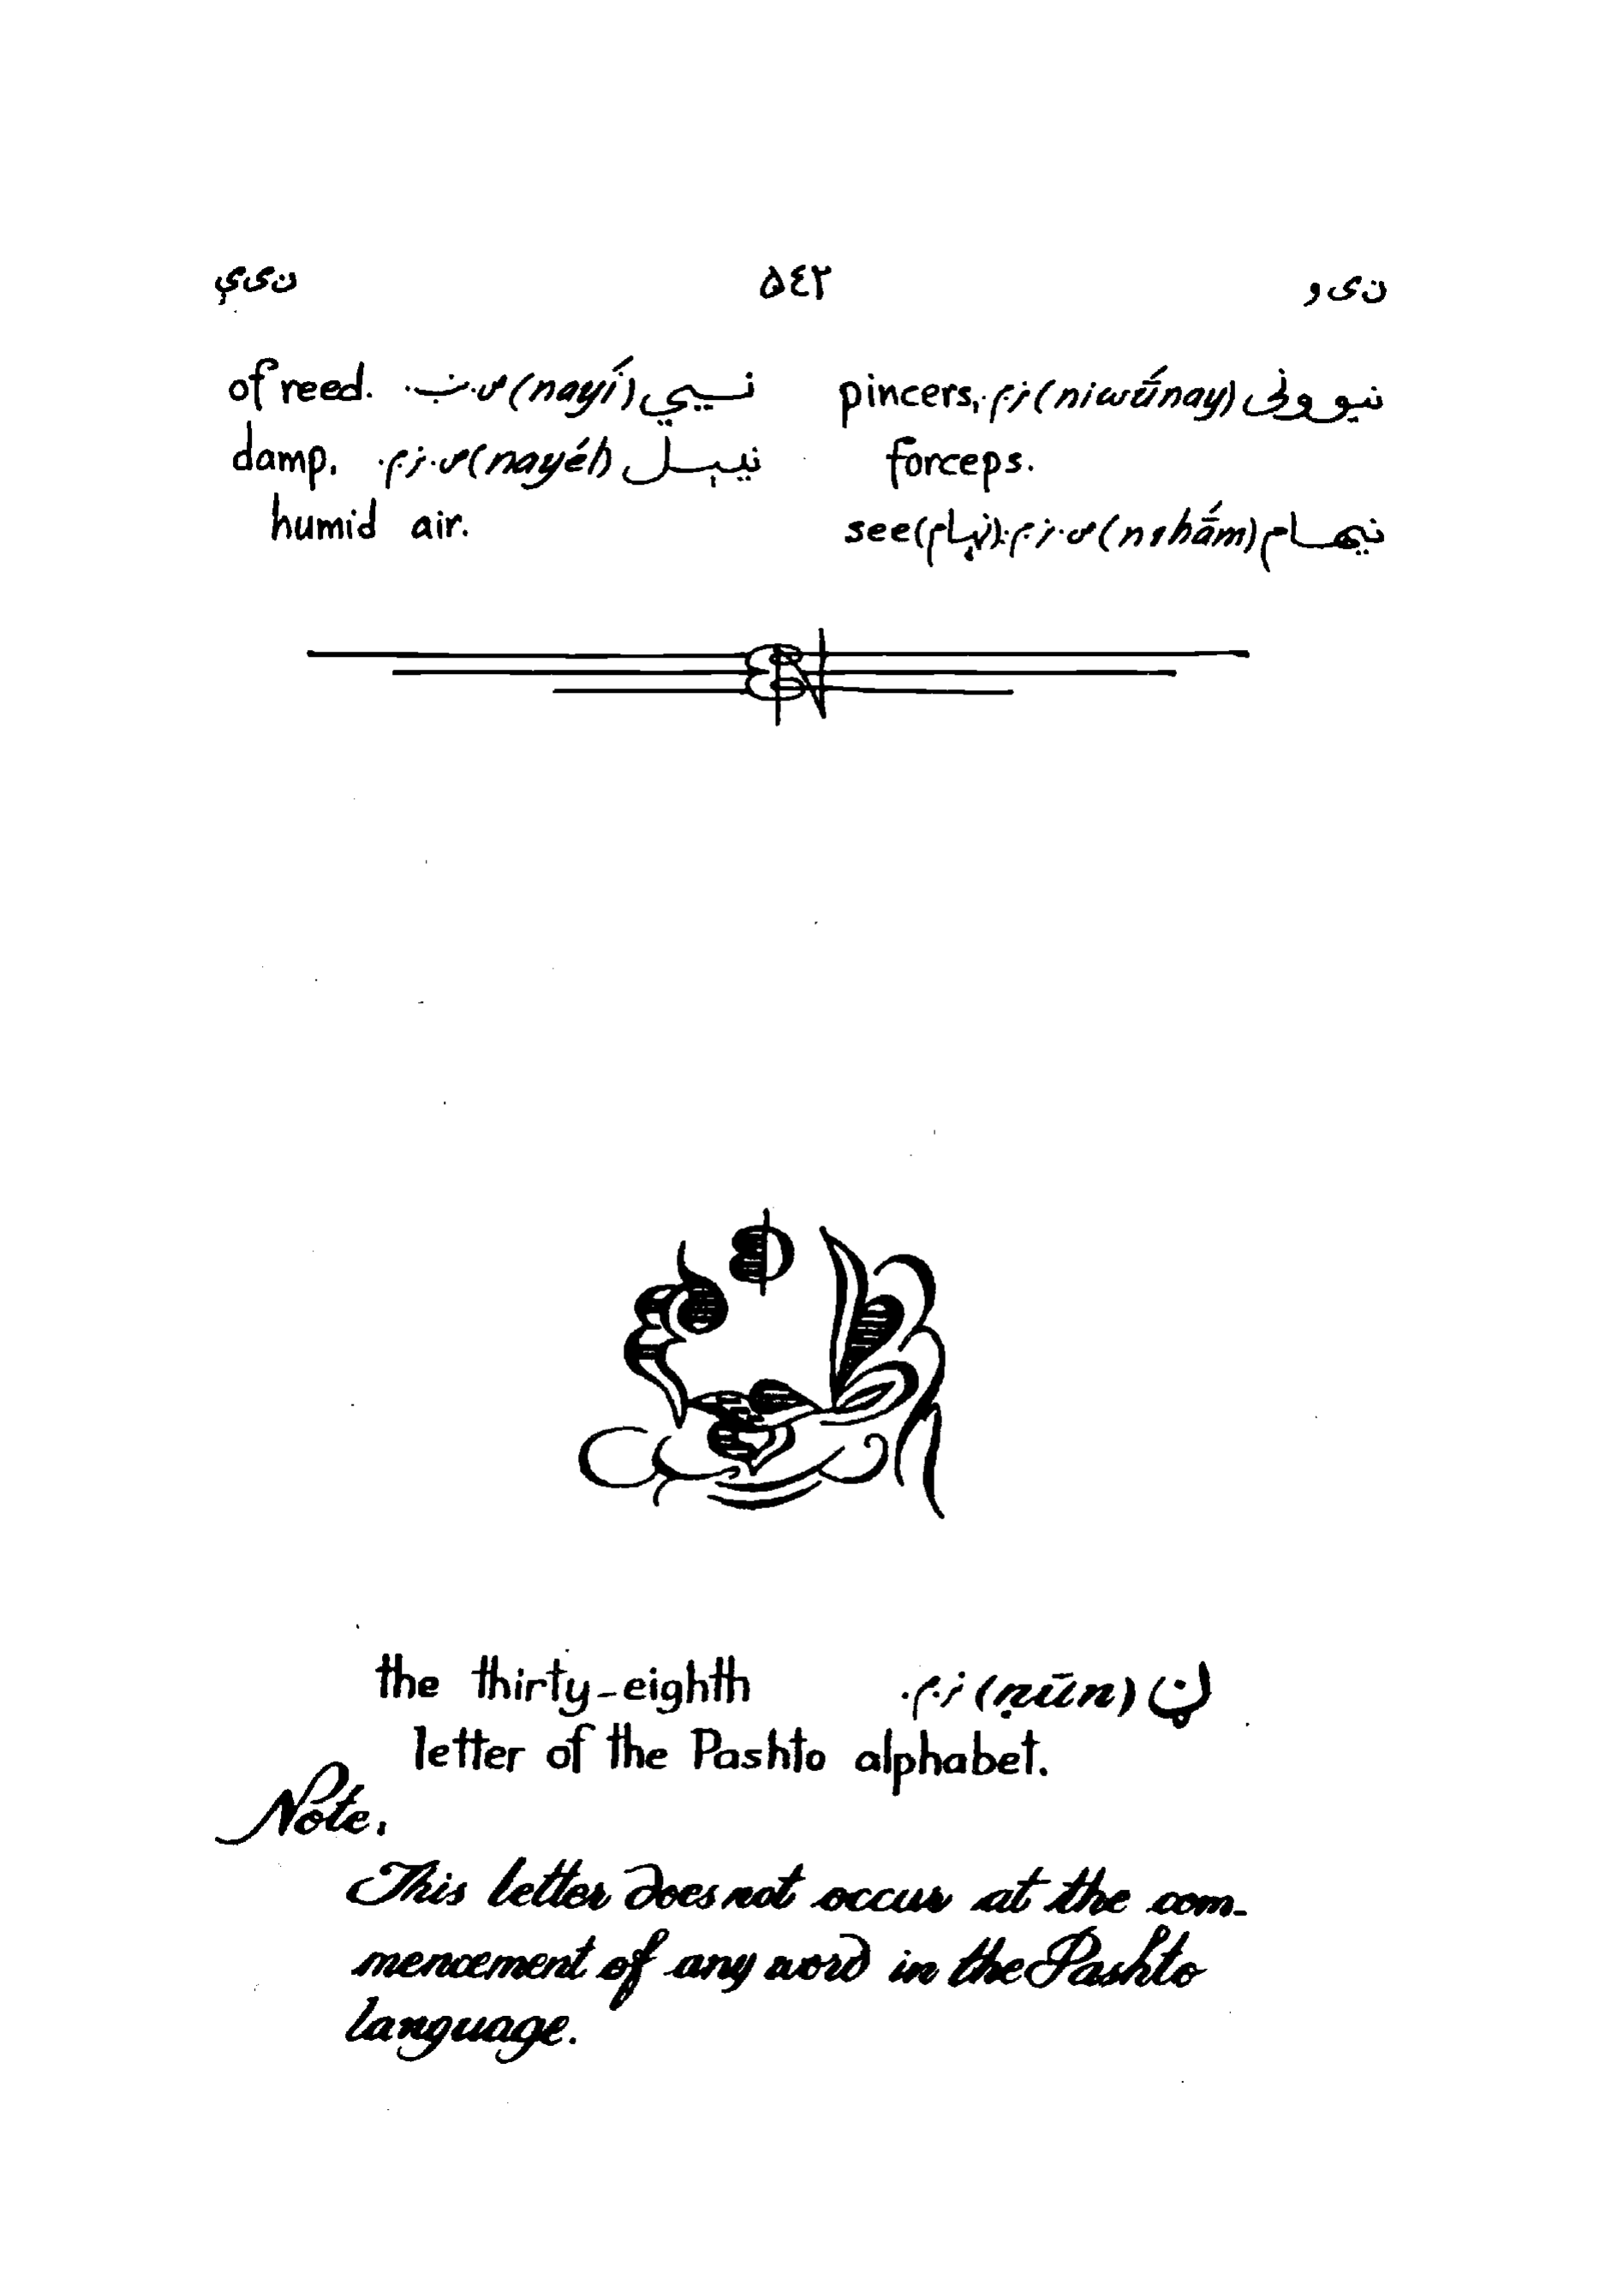 ن ی و ۵٤٢ ن ی ې
نیوونی (niwū́nay) ن.م. pincers,
forceps.
نیهام (nihā́m) ص.ن.م. (نهام) see
نیيي (nayí) ص.ب. of reed.
نییل (nayél) ص.ن.م. damp,
humid air.
ڼ (ṇūn) ن.م. the thirty-eighth
letter of the Pashto alphabet.
Note.
This letter does not occur at the com-
mencement of any word in the Pashto
language.